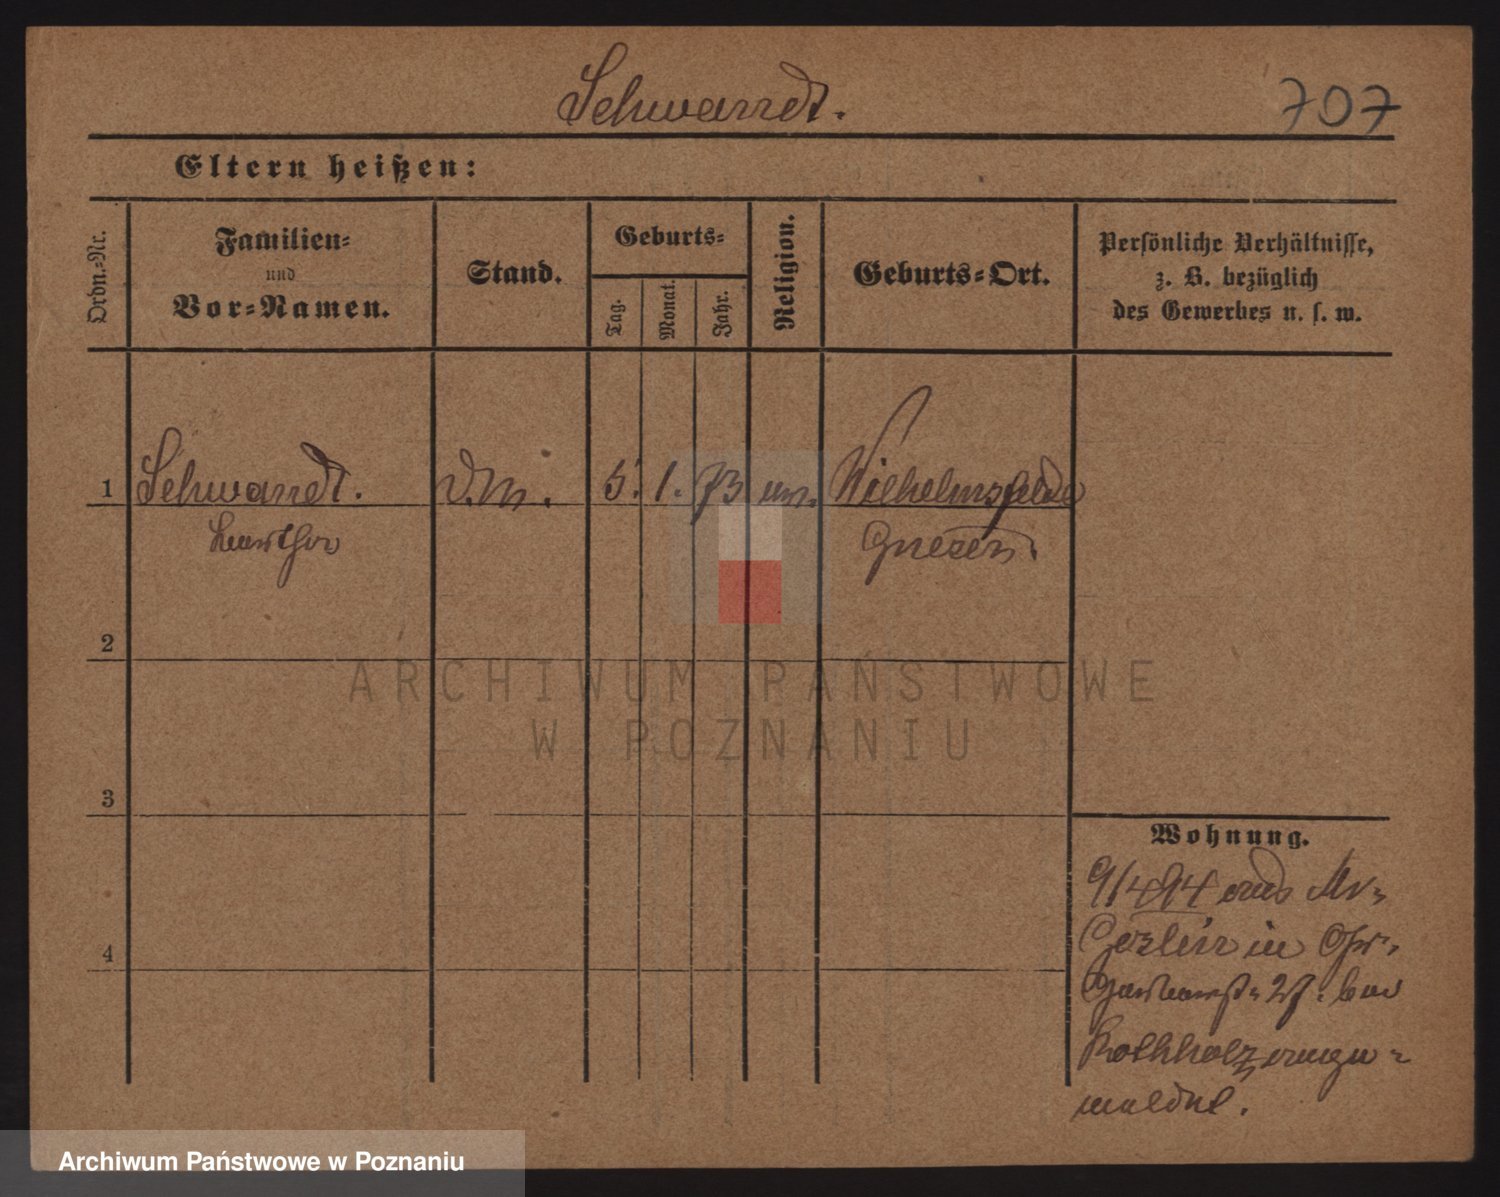 Schwandt.
707
Eltern heißen:
Ordn.-Nr.
Familien-
und
Vor-Namen.
Stand.
Geburts-
Tag.
Monat.
Jahr.
Religion.
Geburts-Ort.
Persönliche Verhältnisse,
z. B. bezüglich
des Gewerbes u. s. w.
1 Schwandt. D.M. 5. 1. 73 ev. Wilhelmsfelde
Gnesen.
2
3
4
Wohnung.
9/4 94 aus
in
27. bei
Rothholz angemeldet.
ARCHIWUM PAŃSTWOWE
W POZNANIU
Archiwum Państwowe w Poznaniu